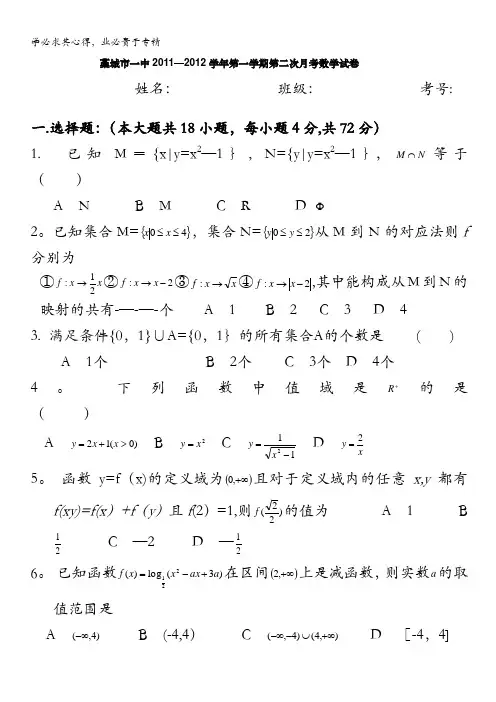 学必求其心得，业必贵于专精
藁城市一中2011—2012学年第一学期第二次月考数学试卷
姓名： 班级： 考号:
一.选择题：（本大题共18小题，每小题4分,共72分）
1. 已知 M＝{x|y=x²—1 }, N={y|y=x²—1 }, M∩N 等于
（ ）
A N B M C R D Φ
2。已知集合M={x|0≤x≤4}，集合N={y|0≤y≤2}从M到N的对应法则f
分别为
①f:x→½x②f:x→x−2③f:x→√x④f:x→|x−2|,其中能构成从M到N的
映射的共有-—-—-个 A 1 B 2 C 3 D 4
3. 满足条件{0，1}∪A={0，1}的所有集合A的个数是 ( )
A 1个 B 2个 C 3个 D 4个
4 。 下列函数中值域是 R⁺ 的是
（ ）
A y=2x+1(x>0) B y=x² C y=1/√(x²−1) D y=2/x
5。 函数 y=f（x)的定义域为(0,+∞)且对于定义域内的任意 x,y 都有
f(xy)=f(x）+f（y）且f(2）=1,则f(√2/2)的值为 A 1 B
1/2 C —2 D —1/2
6。 已知函数f(x)=log_{1/2}(x²−ax+3a)在区间[2,+∞)上是减函数，则实数a的取
值范围是
A (−∞,4) B (-4,4） C (−∞,−4)∪(4,+∞) D ［-4，4]